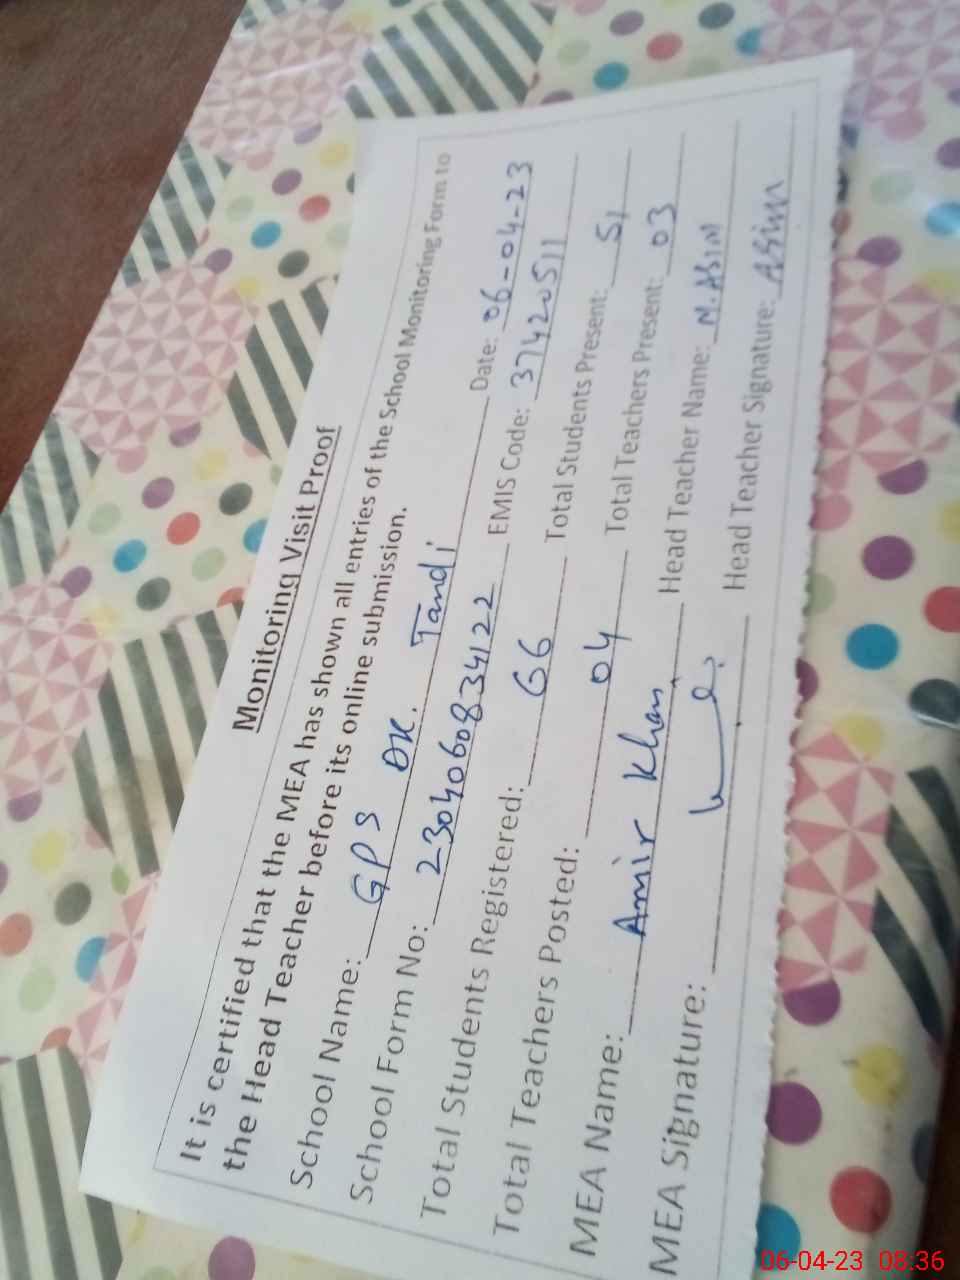 Monitoring Visit Proof
It is certified that the MEA has shown all entries of the School Monitoring Form to
the Head Teacher before its online submission.
School Name: GPS DK. Tandi Date: 06-04-23
School Form No: 2304060834122 EMIS Code: 37420511
Total Students Registered: 66 Total Students Present: 51
Total Teachers Posted: 04 Total Teachers Present: 03
MEA Name: Amir Khan Head Teacher Name: M. ASIM
MEA Signature: Head Teacher Signature: ASim
06-04-23 08:36